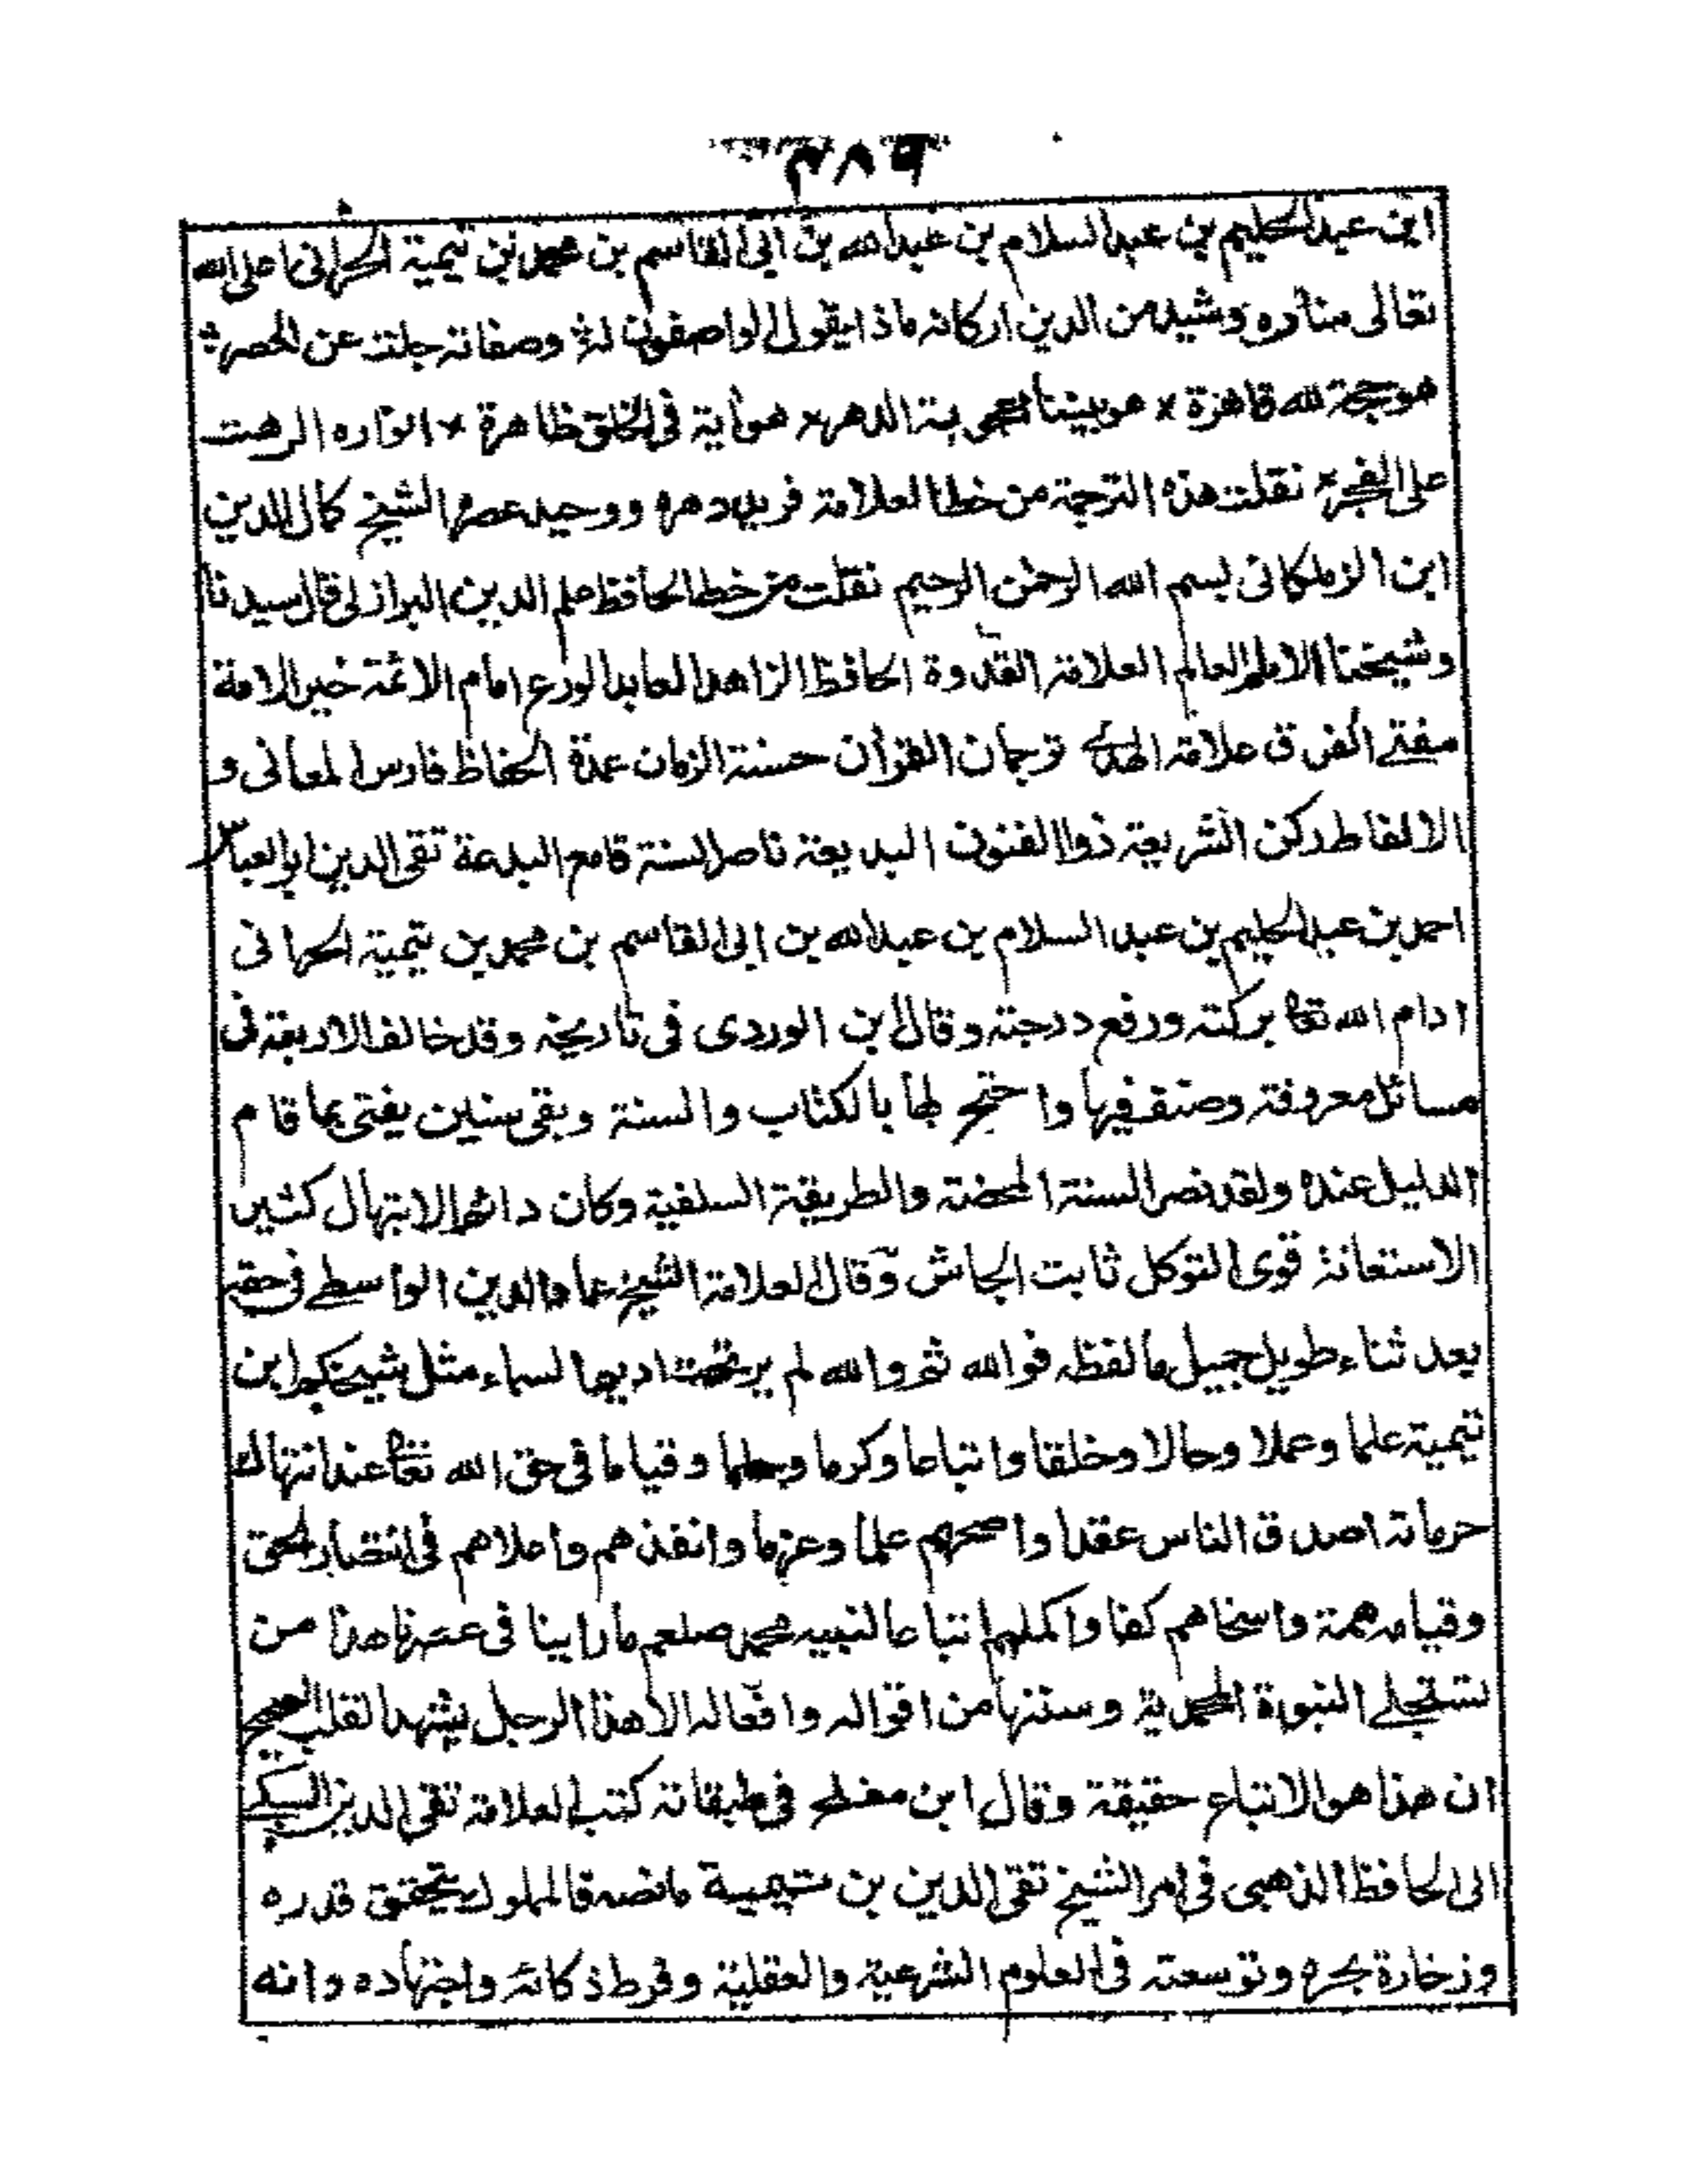 ٣٨٩
ابن عبد الحليم بن عبد السلام بن عبد الله بن ابى القاسم بن محمد بن تيمية الحرانى اعلى الله
تعالى مناره وشيد من الدين اركانه ماذا يقول الواصفون له وصفاته جلت عن الحصر
هو حجة لله قاهرة × هو بيننا اعجوبة الدهر × هو آية فى الخلق ظاهرة × انواره اربت
على الفجر × نقلت هذه الترجمة من خط العلامة فريد دهره ووحيد عصره الشيخ كمال الدين
ابن الزملكانى بسم الله الرحمن الرحيم نقلت من خط الحافظ علم الدين البرازلى قال سيدنا
وشيخنا الامام العالم العلامة القدوة الحافظ الزاهد العابد الورع امام الائمة خير الامة
مفتى الفرق علامة الهدى ترجمان القرآن حسنة الزمان عمدة الحفاظ فارس المعانى و
الالفاظ ركن الشريعة ذو الفنون البديعة ناصر السنة قامع البدعة تقى الدين ابو العباس
احمد بن عبد الحليم بن عبد السلام بن عبد الله بن ابى القاسم بن محمد بن تيمية الحرانى
ادام الله تعا بركته ورفع درجته وقال ابن الوردى فى تاريخه وقد خالف الاربعة فى
مسائل معروفة وصنف فيها واحتج لها بالكتاب والسنة وبقى سنين يفتى بما قام
الدليل عنده ولقد نصر السنة المحضة والطريقة السلفية وكان دائم الابتهال كثير
الاستعانة قوى التوكل ثابت الجاش وقال العلامة الشيخ عماد الدين الواسطى فى حقه
بعد ثناء طويل جميل ما لفظه فوالله ثم والله لم ير تحت اديم السماء مثل شيخكم ابن
تيمية علما وعملا وحالا وخلقا واتباعا وكرما وحلما وقياما فى حق الله تعا عند انتهاك
حرماته اصدق الناس عقدا واصحهم علما وعزما وانفذهم واعلاهم فى انتصار الحق
وقيامه همة واسخاهم كفا واكملهم اتباعا لنبيه محمد صلعم ما راينا فى عصرنا هذا من
تستجلى النبوة المحمدية وسننها من اقواله وافعاله الا هذا الرجل يشهد القلب الصحيح
ان هذا هو الاتباع حقيقة وقال ابن مفلح فى طبقاته كتب العلامة تقى الدين السبكى
الى الحافظ الذهبى فى امر الشيخ تقى الدين بن تيمية ما نصه فالمملوك يتحقق قدره
وزخارة بحره وتوسعته فى العلوم الشرعية والعقلية وفرط ذكائه واجتهاده وانه